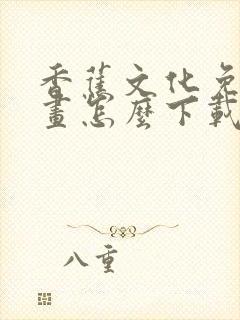 香蕉文化免
畫怎麼下載
八重